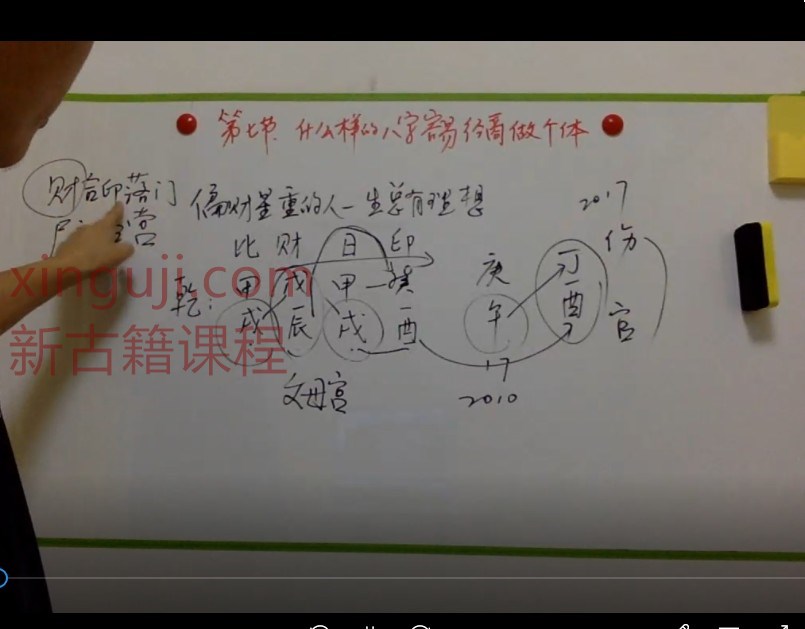 第七节 什么样的八字容易经商做个体
财官印落门 偏财星重的人一生总有理想 2017
营
比 财 日 印 伤
庚 丁
乾: 甲 戊 甲 癸
戌 辰 戌 酉 午 酉 官
17
父母宫 2010
xinguji.com
新古籍课程